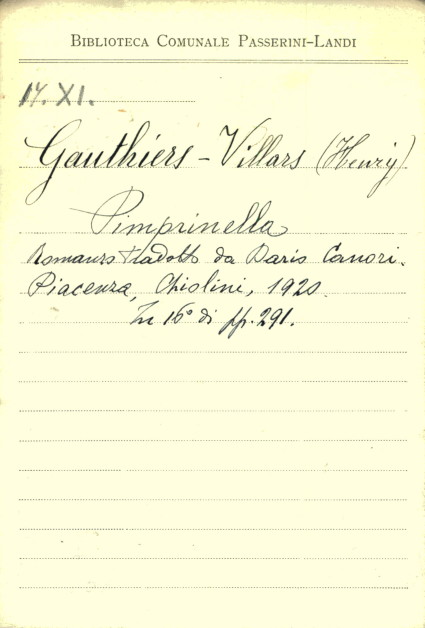 BIBLIOTECA COMUNALE PASSERINI-LANDI
17. XI.
Gauthiers-Villars (Henry)
Pimprinella
Romanzo tradotto da Dario Canori.
Piacenza, Ghiolini, 1920.
In 16° di pp. 291.